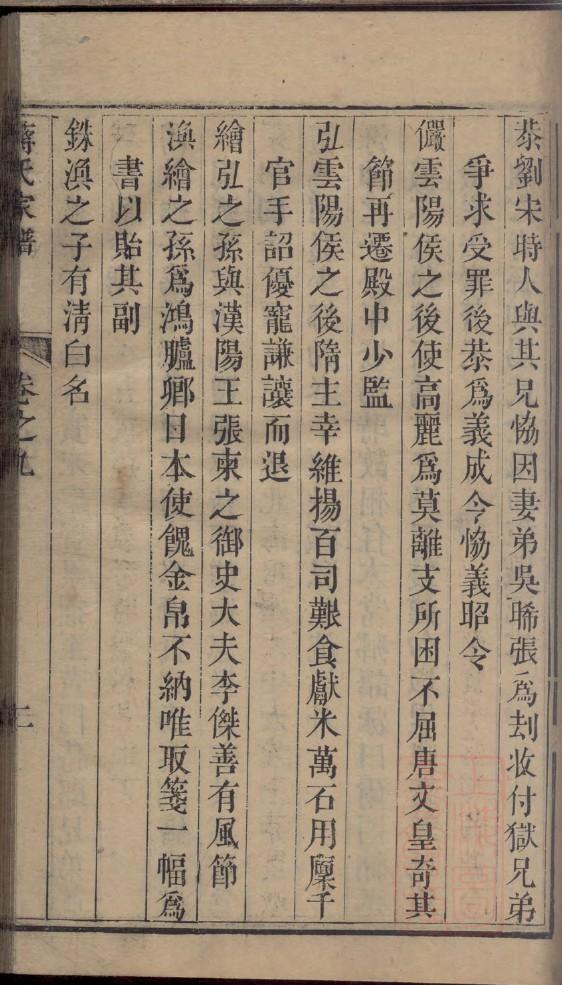 恭劉宋時人與其兄恊因妻弟吳晞張爲刦收付獄兄弟
爭求受罪後恭爲義成令恊義昭令
儼雲陽侯之後使高麗爲莫離支所困不屈唐文皇奇其
節再遷殿中少監
弘雲陽侯之後隋主幸維揚百司艱食獻米萬石用廩千
官手詔優寵謙讓而退
繪弘之孫與漢陽王張柬之御史大夫李傑善有風節
渙繪之孫爲鴻臚卿日本使餽金帛不納唯取箋一幅爲
書以貽其副
銖渙之子有淸白名
蔣氏家譜
卷之九
三